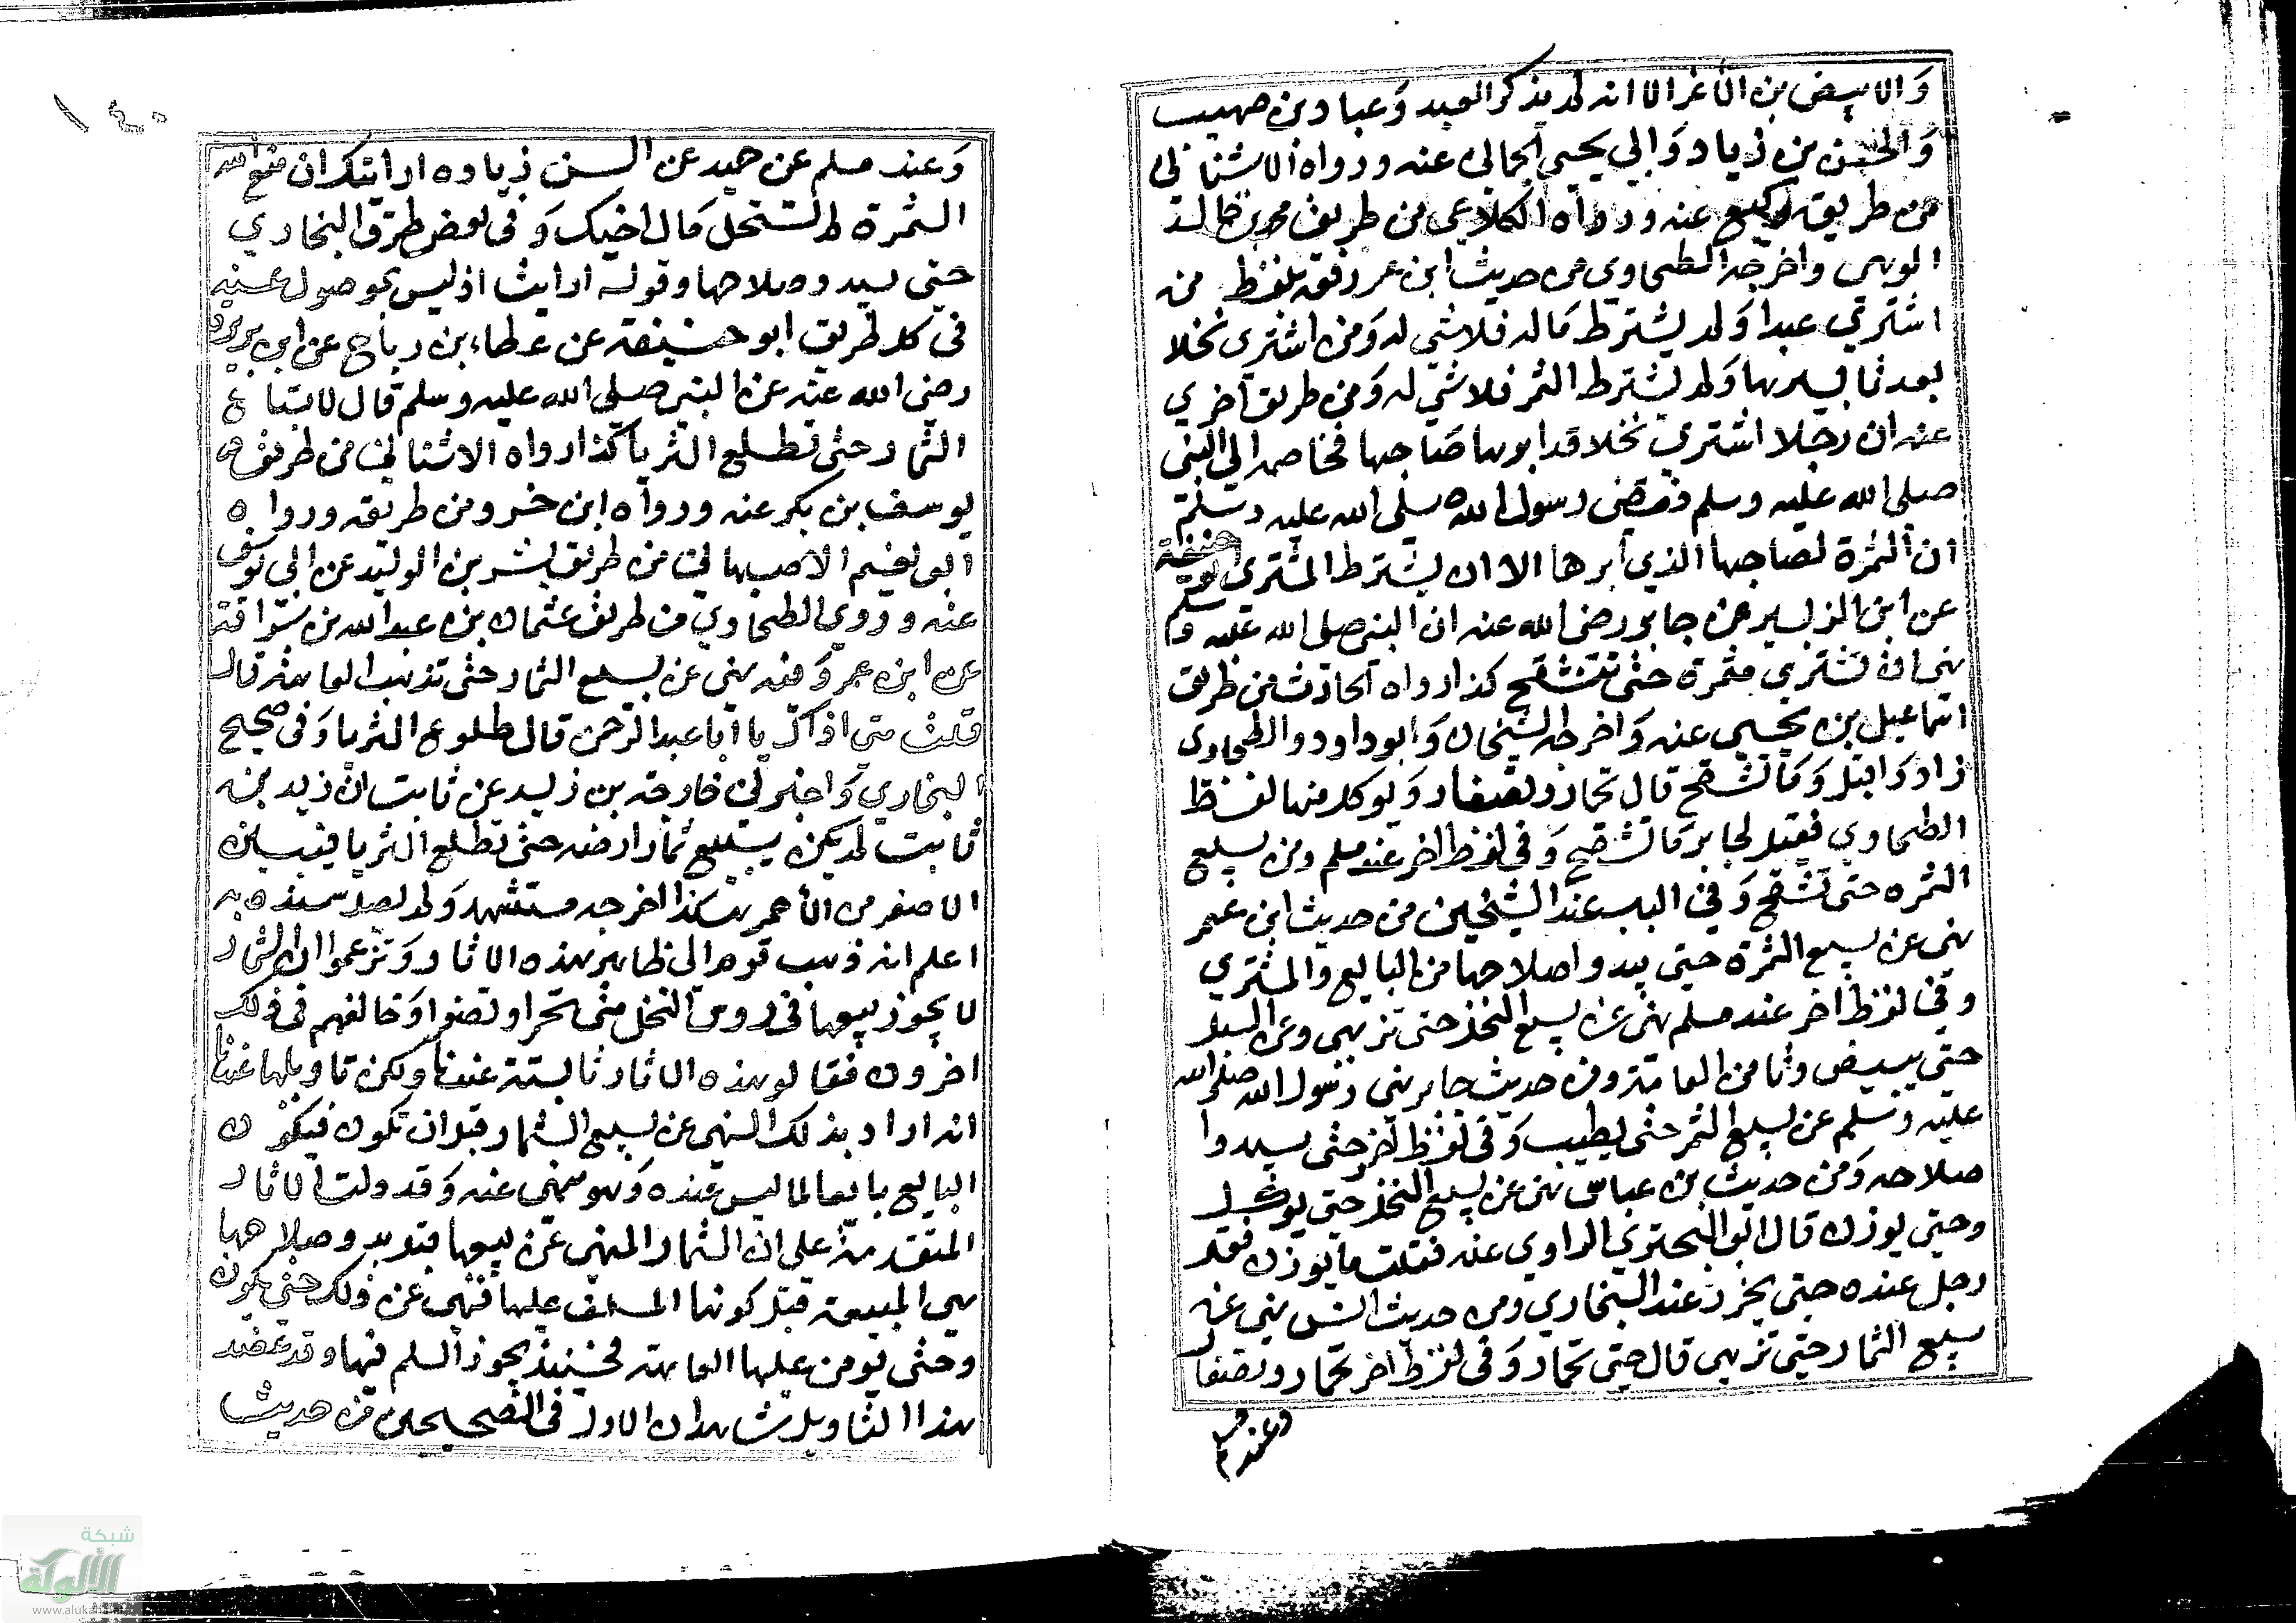 والابيض بن الأغر الا انه لم يذكر العبد وعباد بن صهيب
والحسن بن زياد وابي يحيى الحمالي عنه ورواه الاشناني
من طريق وكيع عنه ورواه الكلاعي من طريق محمد بن خالد
الوهبي واخرجه الطحاوي من حديث ابن عمر رفعه بلفظ من
اشترى عبدا ولم يشترط ماله فلا شي له ومن اشترى نخلا
بعد تابيرها ولم يشترط الثمر فلا شي له ومن طريق اخرى
عنه ان رجلا اشترى نخلا قد ابرها صاحبها فخاصمه الى النبي
صلى الله عليه وسلم فقضى رسول الله صلى الله عليه وسلم
ان الثمرة لصاحبها الذي ابرها الا ان يشترط المشتري ابو حنيفة
عن ابن الزبير عن جابر رضى الله عنه ان النبي صلى الله عليه وسلم
نهى ان تشترى ثمرة حتى تشقح كذا رواه الحارث من طريق
اسماعيل بن يحيى عنه واخرجه الشيخان وابو داود والطحاوي
زاد وا قيل وما تشقح قال تحمار وتصفار ويوكل منها لفظ
الطحاوي فقيل لجابر ما تشقح وفي لفظ اخر عند مسلم ومن بيع
الثمره حتى تشقح وفي الباب عند الشيخين من حديث ابن عمر
نهى عن بيع الثمرة حتى يبدو اصلاحها من البايع والمشتري
وفي لفظ اخر عند مسلم نهى عن بيع النخل حتى تزهي وعن السنبل
حتى يبيض ويامن العاهة ومن حديث جابر نهى رسول الله صلى الله
عليه وسلم عن بيع الثمر حتى يطيب وفي لفظ اخر حتى يبدوا
صلاحه ومن حديث بن عباس نهى عن بيع النخل حتى يوكل
وحتى يوزن قال ابو البحتري الراوي عنه فقلت ما يوزن فقال
رجل عنده حتى يحزر عند البخاري ومن حديث انس نهى عن
بيع الثمار حتى تزهي قال حتى تحمار وفي لفظ اخر تحمار وتصفار
وعند م
١٤٠
وعند مسلم عن حميد عن انس زياده ارايتك ان منع الله
الثمرة لم تستحل مال اخيك وفي بعض طرق البخاري
حتى يبدو صلاحها وقوله ارايت اذ ليس بموصول عنه
في كل طريق ابو حنيفة عن عطاء بن رباح عن ابي هريرة
رضى الله عنه عن النبي صلى الله عليه وسلم قال لا تباع
الثمار حتى تطلع الثريا كذا رواه الاشناني من طريق
يوسف بن بكر عنه ورواه ابن خسرو من طريقه ورواه
ابو نعيم الاصبهاني من طريق بشر بن الوليد عن ابي يوسف
عنه وروى الطحاوي من طريق عثمان بن عبد الله بن سراقة
عن ابن عمر رفعه نهى عن بيع الثمار حتى تذهب العاهة قال
قلت متى اذاك يا ابا عبد الرحمن قال طلوع الثريا وفي صحيح
البخاري واخبرني خارجة بن زيد عن ثابت ان زيد بن
ثابت لم يكن يبيع ثمار ارضه حتى تطلع الثريا فيتبين
الاصفر من الأحمر هكذا اخرجه مستشهد ولم يصل سنده به
اعلم انه ذهب قوم الى ظاهر هذه الاثار وزعموا ان الثمار
لا يجوز بيعها في رؤس النخل حتى تحمر او تصفر وخالفهم في ذلك
اخرون فقالو هذه الاثار ثابتة عندنا ولكن تاويلها عندنا
انه اراد بذلك النهى عن بيع الثمار قبل ان تكون فيكون
البايع بايعا لما ليس عنده وهو منهى عنه وقد دلت الاثار
المتقدمة على ان الثمار المنهى عن بيعها قبل بدو صلاحها
هي المبيعة قبل كونها المسلف عليها فنهى عن ذلك حتى يكون
وحتى يومن عليها العاهة فحينئذ يجوز السلم فيها وقد عضد
هذا التاويل شاهدان الاول في الصحيحين من حديث
شبكة
الألوكة
www.aluka